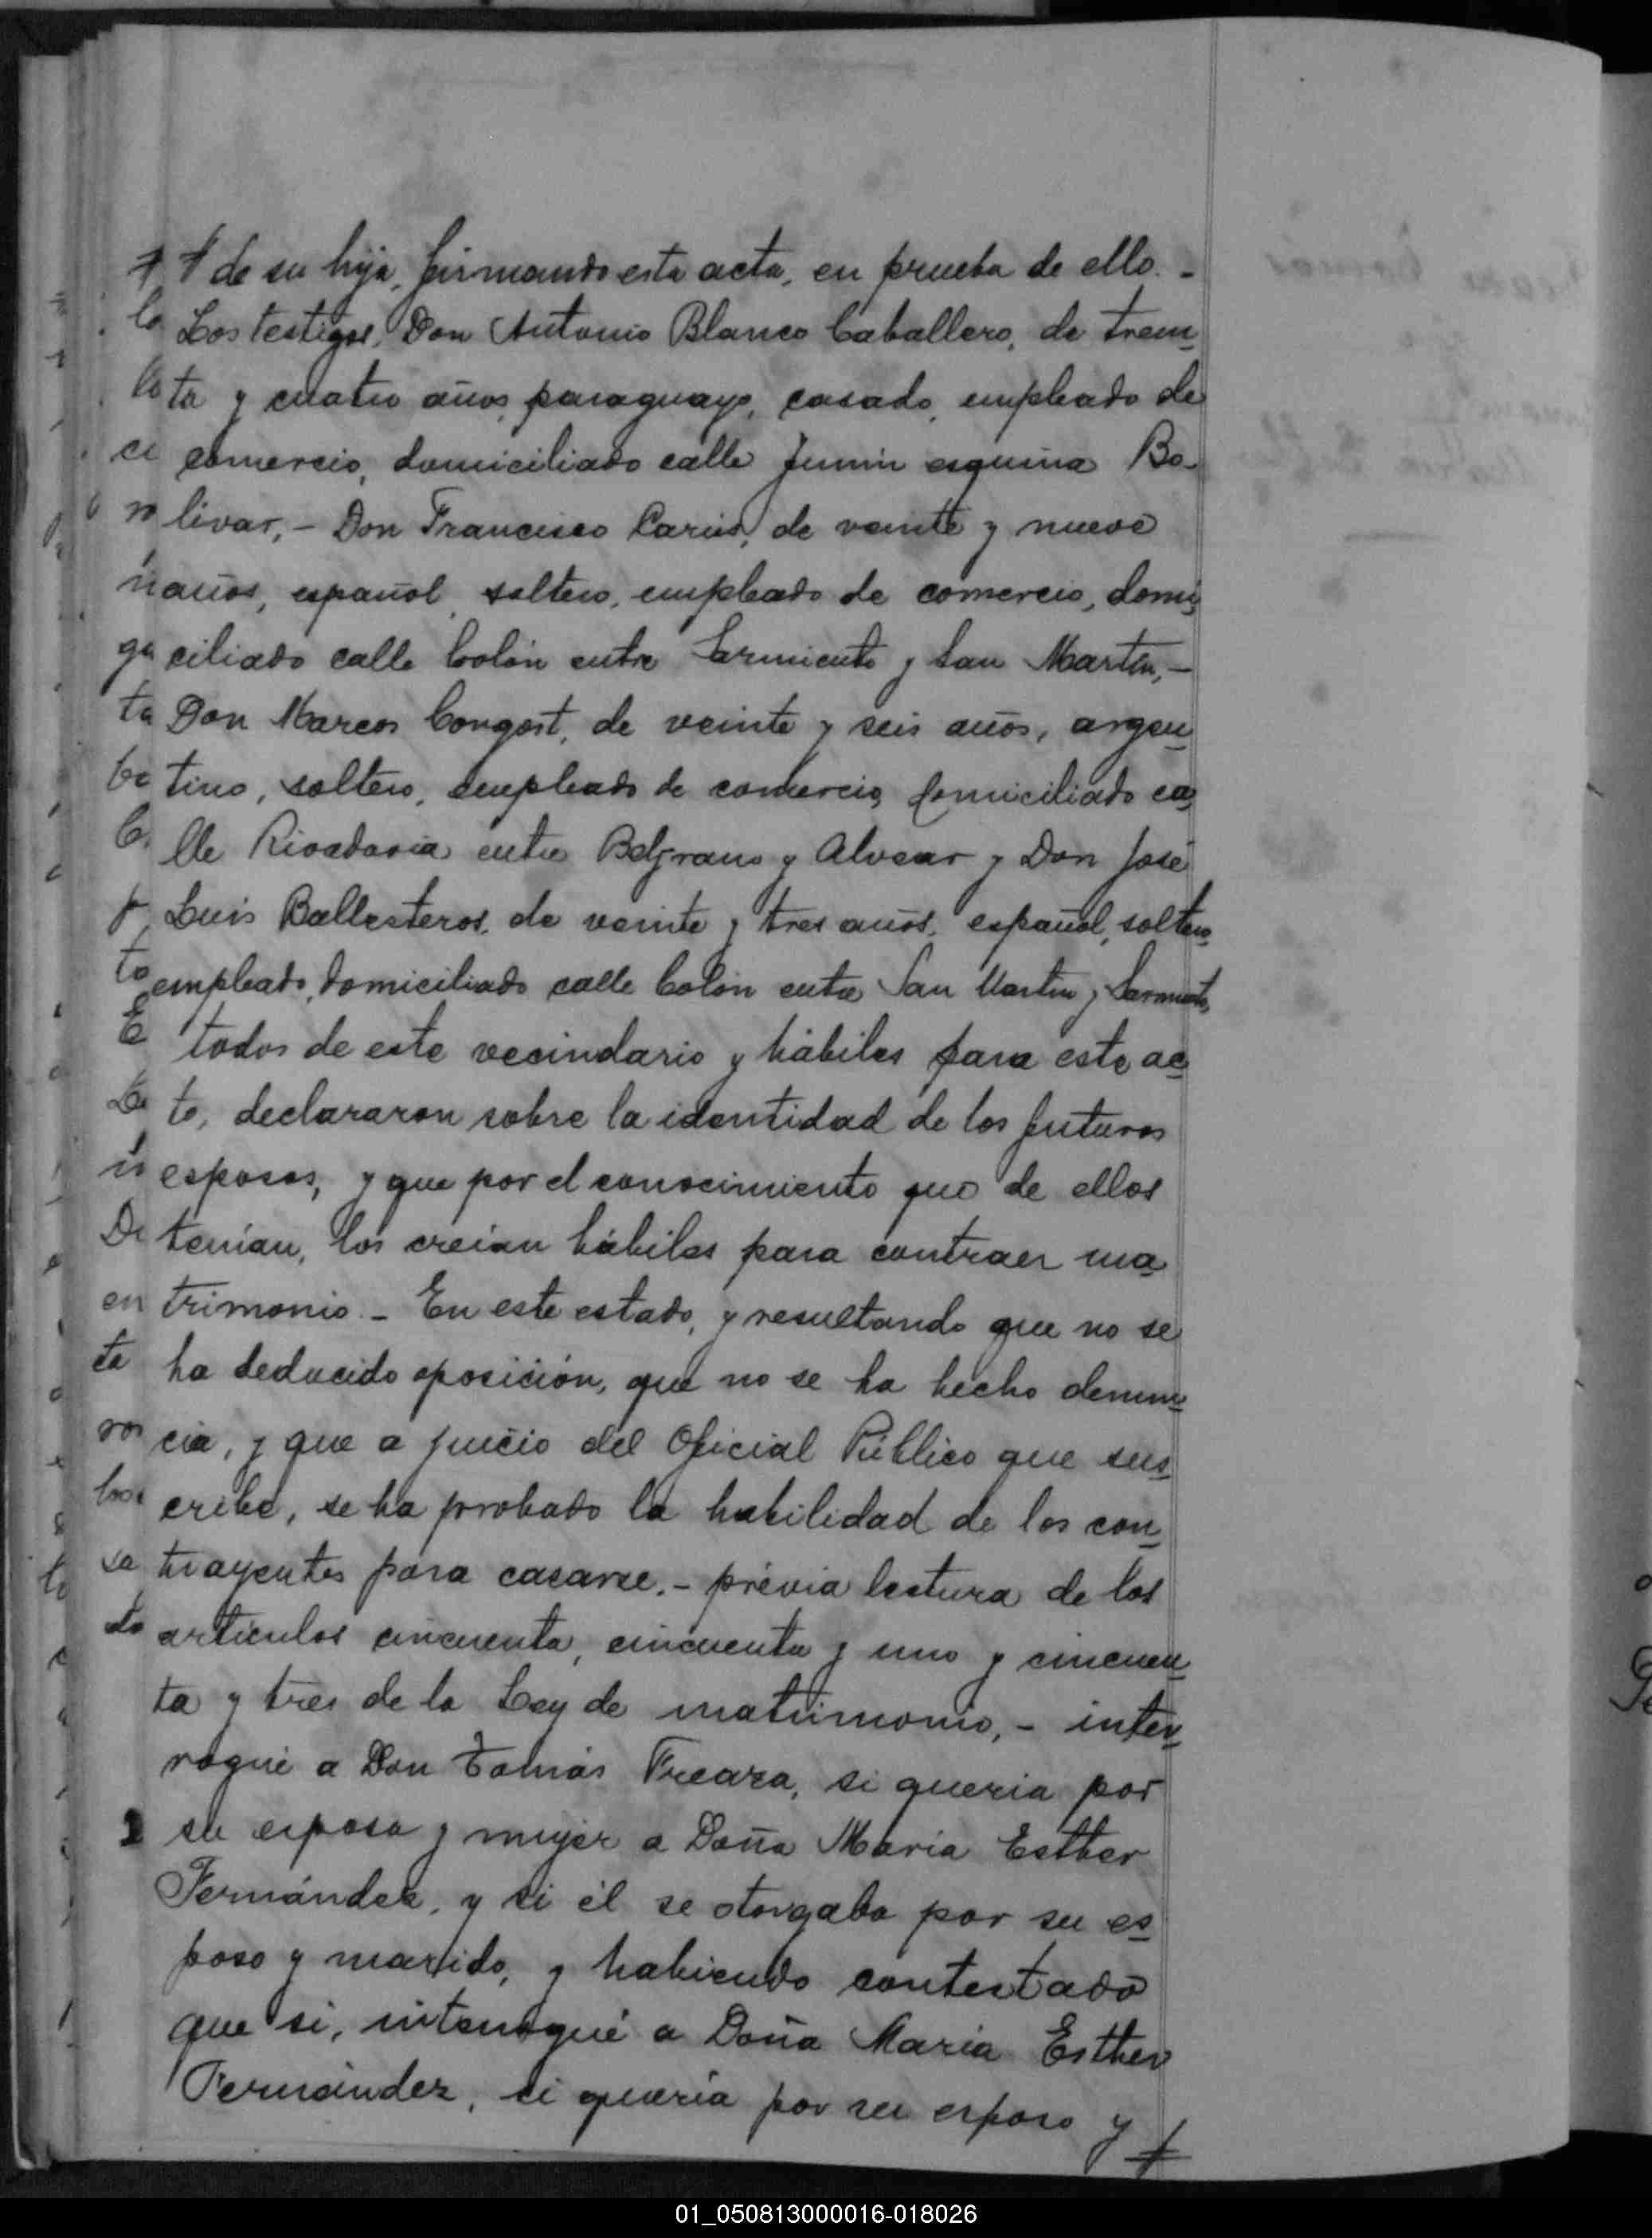 de su hija, firmando esta acta, en prueba de ello. -
Los testigos, Don Antonio Blanco Caballero, de trein
ta y cuatro años, paraguayo, casado, empleado de
comercio, domiciliado calle Junin esquina Bo-
livar, - Don Francisco Carús, de veinte y nueve
años, español, soltero, empleado de comercio, domi
ciliado calle Colón entre Sarmiento y San Martín, -
Don Marcos Congost, de veinte y seis años, argen
tino, soltero, empleado de comercio, domiciliado ca
lle Rivadavia entre Belgrano y Alvear y Don José
Luis Ballesteros, de veinte y tres años, español, soltero
empleado, domiciliado calle Colón entre San Martin y Sarmiento,
todos de este vecindario y hábiles para este ac
to, declararon sobre la identidad de los futuros
esposos, y que por el conocimiento que de ellos
tenían, los creían hábiles para contraer ma
trimonio. - En este estado, y resultando que no se
ha deducido oposición, que no se ha hecho denun
cia, y que a juicio del Oficial Público que sus
cribe, se ha probado la habilidad de los con
trayentes para casarse. - prévia lectura de los
artículos cincuenta, cincuenta y uno y cincuen
ta y tres de la Ley de matrimonio, - inter
rogué a Don Tomás Freaza, si queria por
su esposa y mujer a Doña María Esther
Fernández, y si él se otorgaba por su es
poso y marido, y habiendo contestado
que si, interrogué a Doña María Esther
Fernández, si quería por su esposo y
01_050813000016-018026